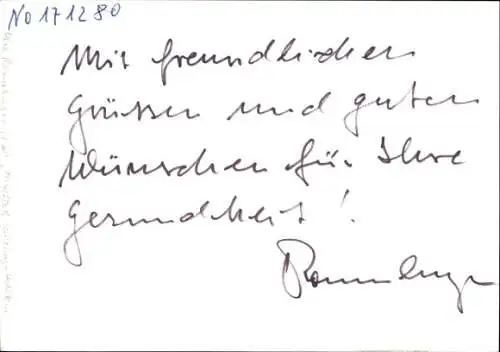 No 171280
Mit freundlichen
Grüssen und guten
Wünschen für Ihre
Gesundheit!